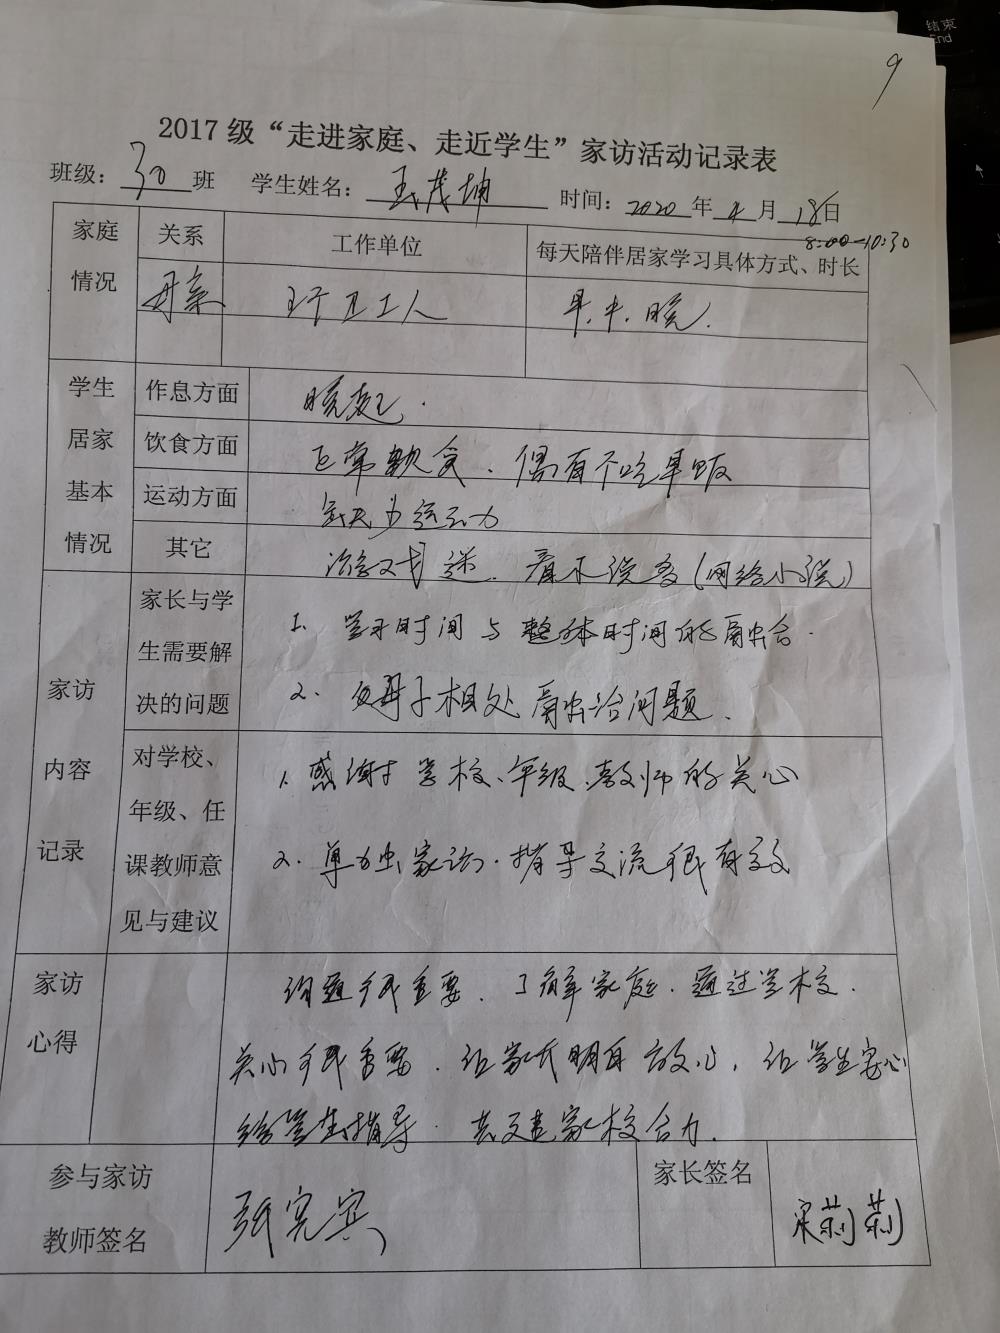 结束
End
9
2017 级“走进家庭、走近学生”家访活动记录表
班级：30班 学生姓名：茂坤 时间：2020年4月18日
8:00-10:30
家庭情况 关系 工作单位 每天陪伴居家学习具体方式、时长
母亲 环卫工人 早.中.晚.
学生居家基本情况 作息方面 晚起.
饮食方面 正常飲食.偶有不吃早饭
运动方面 每天少运动
其它 游戏迷.看小说多(网络小说)
家访内容记录 家长与学生需要解决的问题 1. 学习时间与整体时间的融合.
2. 母子相处融洽问题.
对学校、年级、任课教师意见与建议 1.感谢学校、年级、教师的关心
2.单加出家访.指导交流很有效
家访心得 沟通很重要.了解家庭.通过学校.
关心很重要.让家长明白放心,让学生安心
给学生指导.共建家校合力.
参与家访教师签名 张宪宾 家长签名 宋莉莉